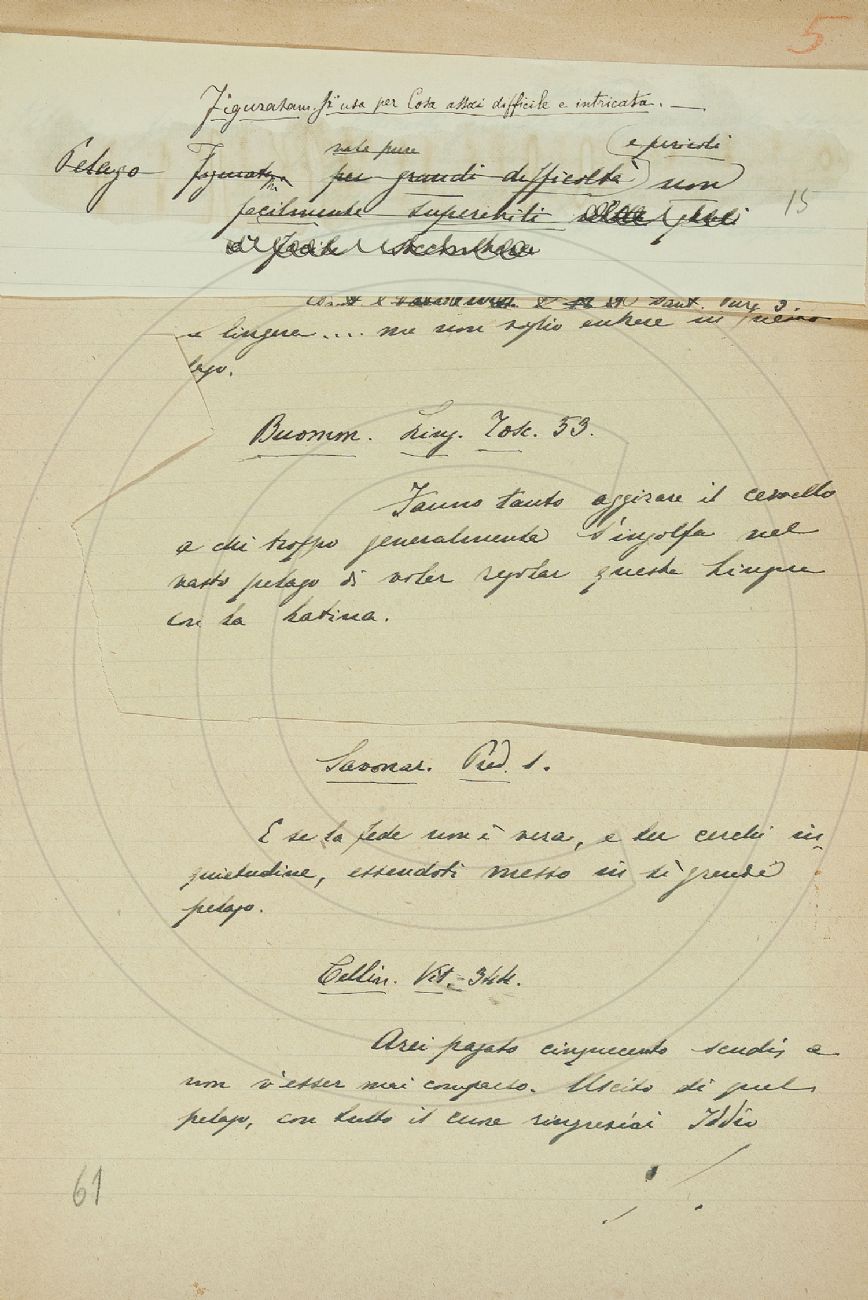 5
Figuratam. Si usa per Cosa assai difficile e intricata. —
vale pure e pericoli
Pelago Figuratam per grandi difficoltà non
15
facilmente superabili
di facile
Dant. Purg.
e lingere.... ma non voglio entrare in
lago.
Buomm. Ling. Tosc. 53.
Fanno tanto aggirare il cervello
a chi troppo generalmente s'ingolfa nel
vasto pelago di voler regolar questa Lingua
con la Latina.
Savonar. Pred. 1.
E se la fede non è vera, e tu cerchi in-
quietudine, essendoti messo in sì grande
pelago.
Cellin. Vit. 344.
Arei pagato cinquecento scudi, a
non v'esser mai comparso. Uscito di quel
pelago, con tutto il cuore ringraziai Iddio
61